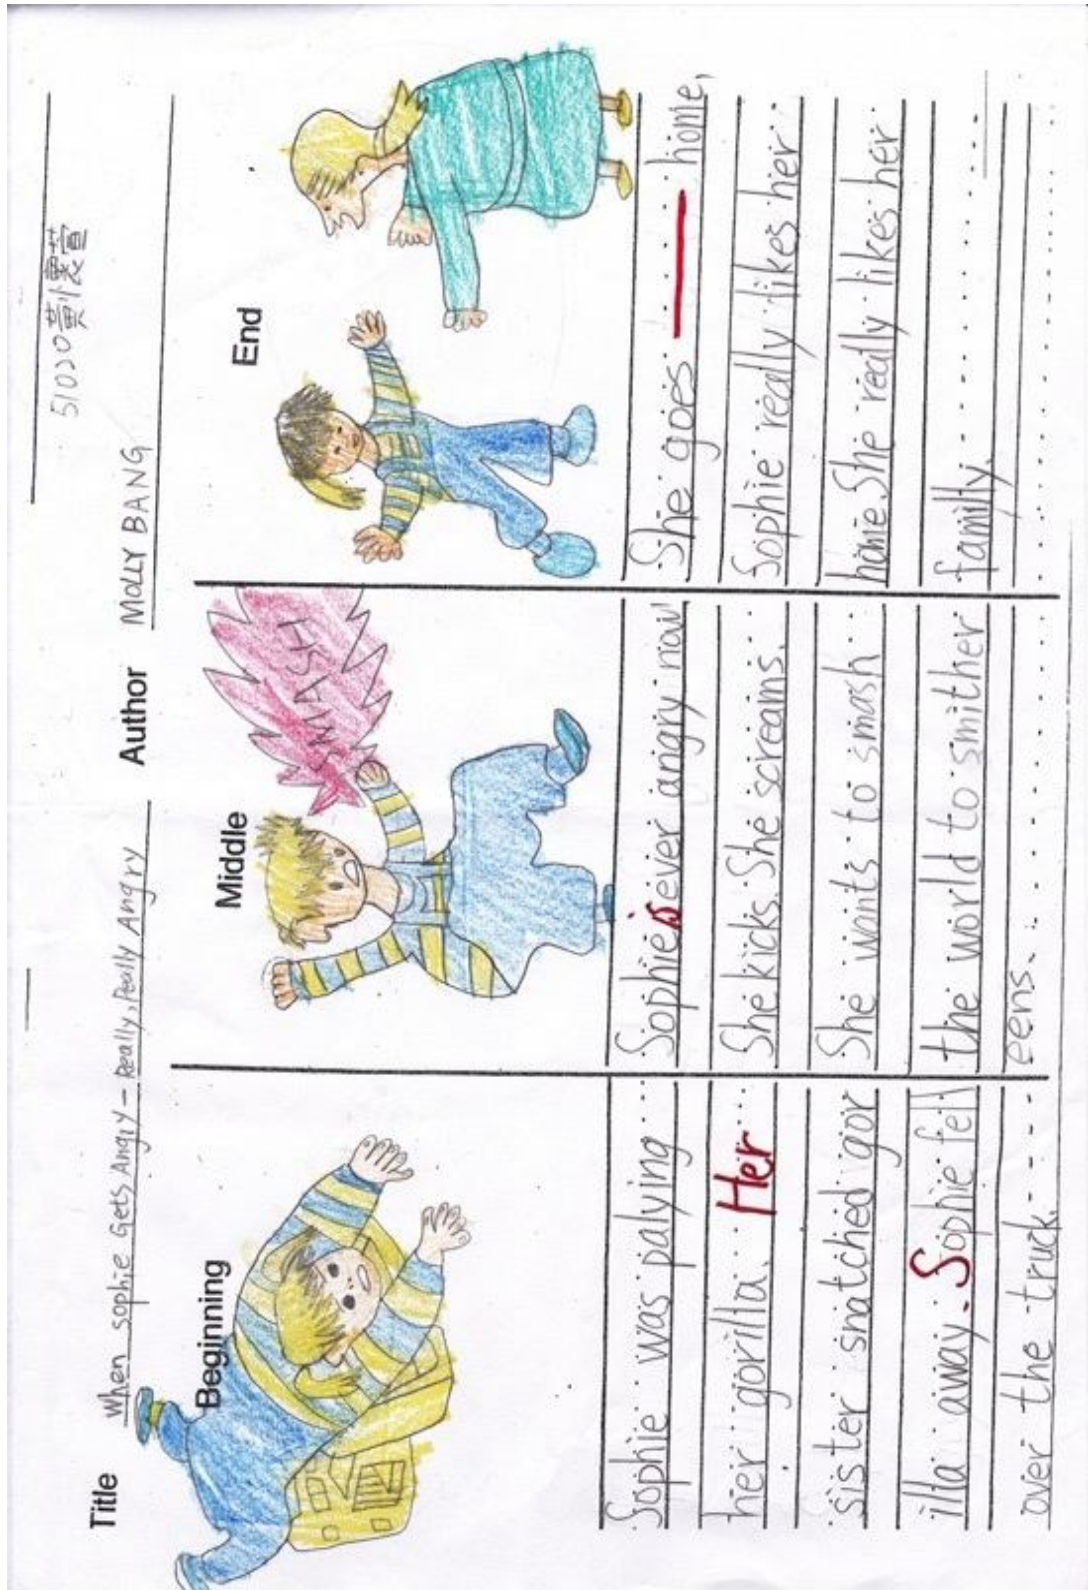 51030 黄懷萱
Title When Sophie Gets Angry - Really, Really Angry Author MOLLY BANG
Beginning
Sophie was palying
her gorilla. Her
sister snatched gor
illa away. Sophie fell
over the truck.
Middle
SMASH
Sophie is ever angry now
She kicks. She screams.
She wants to smash
the world to smither
eens.
End
She goes home,
Sophie really likes her
home. She really likes her
family.